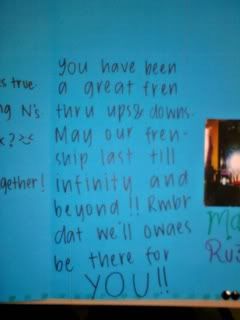 You have been
a great fren
thru ups & downs.
May our fren-
ship last till
infinity and
beyond !! Rmbr
dat we'll owaes
be there for
YOU!!
s true.
ng N's.
x?
gether!
Ma
Ru